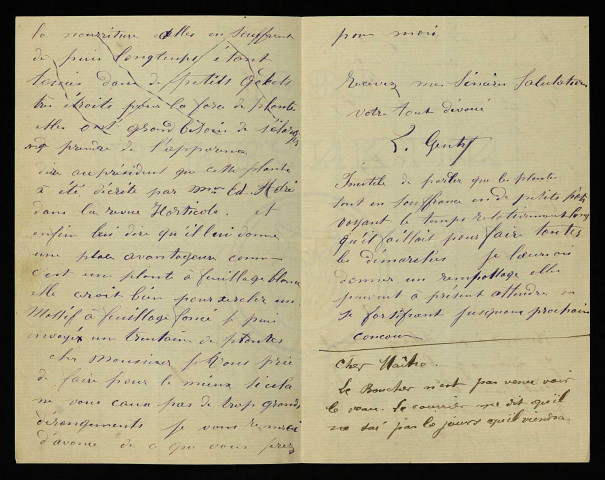 la nourriture elles en souffrent
de puis longtemps étant
dans de petits godets
très étroits pour la force de plante
elles ont grand besoin de
prendre de
dire au président que cette plante
à été décrite par Mr Ed. André
dans la revue Horticole. et
enfin lui dire qu'il lui donne
une place avantageuse comme
c'est un plante à feuillage blanc
elle serait bien pour un
Massif à feuillage foncé je puis
envoyéx un trentaine de plantes
cher Monsieur je vous prie
de faire pour le mieux si cela
ne vous cause pas de trop grands
dérangements je vous remercie
d'avance de ce que vous ferez
pour moi
Recevez mes sincères Salutations
votre tout dévoué
L. Genty
Inutile de parler que les plantes
sont en souffrance en de petits pots
voyant le temps relativement long
qu'il faillait pour faire toutes
les démarches je leur ai
donner un rempottage elles
peuvent à présent attendre en
se fortifiant jusqu'au prochain
concour
Cher Maître.
Le Boucher n'est pas venu voir
le veau. Le courrier me dit qu'il
ne sai pas le jours qu'il viendra